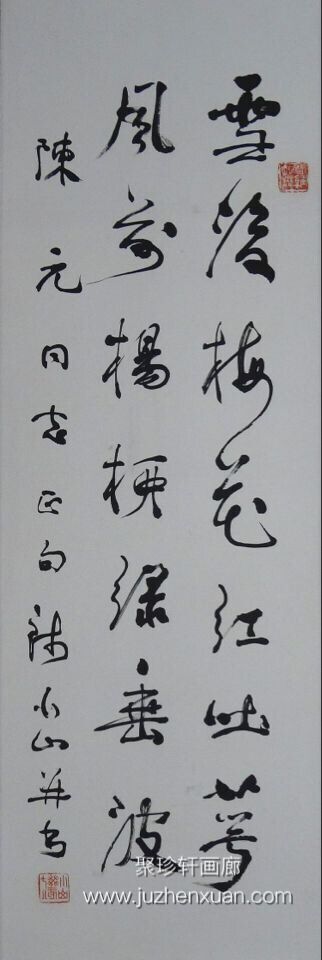 雪後梅花红吐萼
風前楊柳绿垂波
陳元同志正句 錢小山并书
聚珍轩画廊
www.juzhenxuan.com